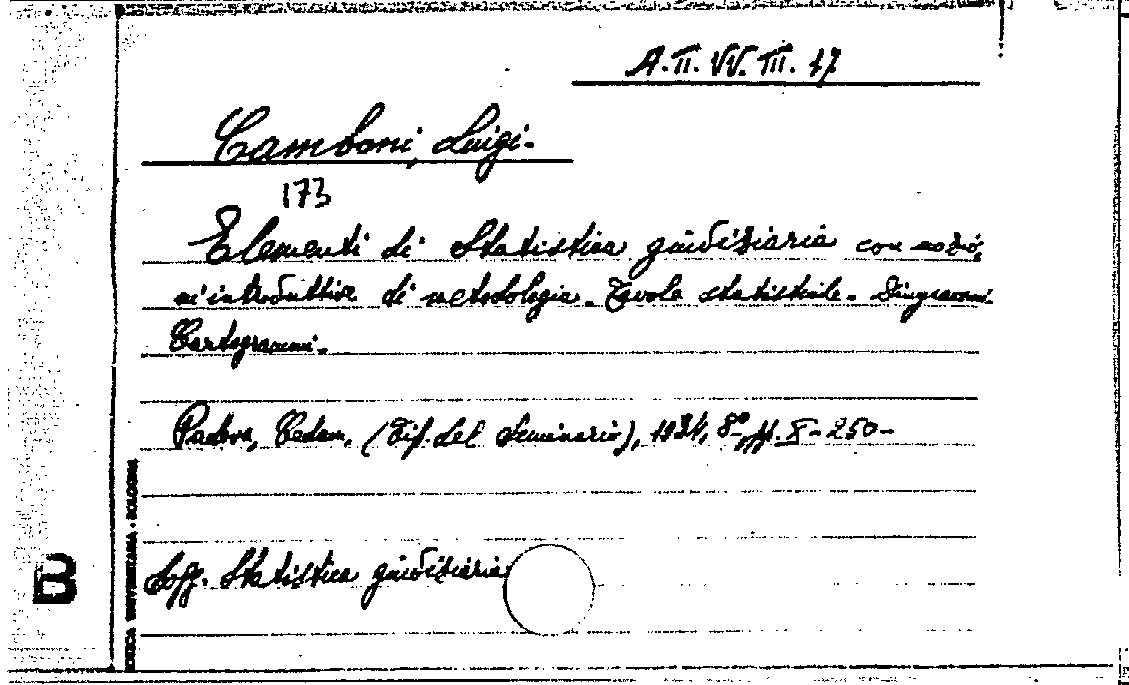 A. II. VV. III. 17
Camboni, Luigi.
173
Elementi di Statistica giudiziaria con nozio,
ni introduttive di metodologia. Tavole statistiche. Diagrammi
Cartogrammi.
Padova, Cedam, (Tip. del Seminario), 1934, 8°, pp. X-250-
Sogg. Statistica giudiziaria
B
UNIVERSITARIA - BOLOGNA